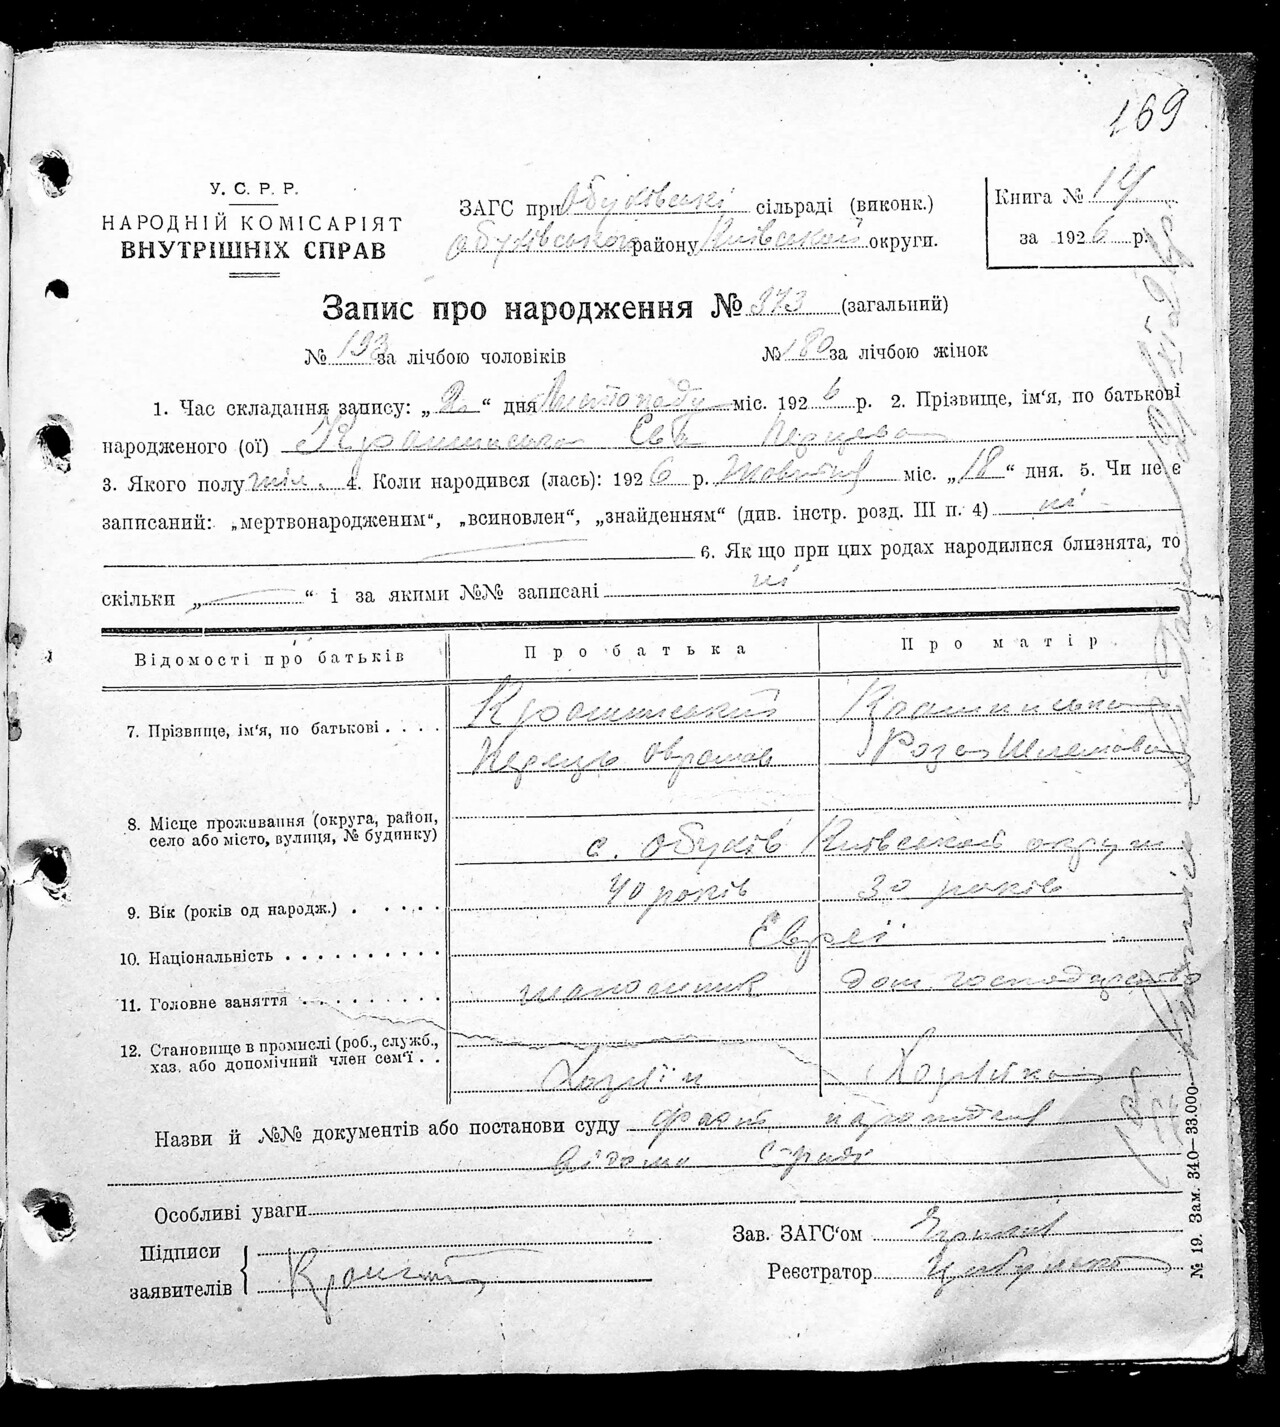 169
У. С. Р. Р.
НАРОДНІЙ КОМІСАРІЯТ
ВНУТРІШНІХ СПРАВ
ЗАГС при Обухівські сільраді (виконк.)
Обухівського району Київської округи.
Книга № 14
за 1926 р.
Запис про народження № 373 (загальний)
№ 193 за лічбою чоловіків № 180 за лічбою жінок
1. Час складання запису: „2“ дня Листопаду міс. 1926 р. 2. Прізвище, ім‘я, по батькові
народженого (ої) Ева Перцева
3. Якого полу жін. 4. Коли народився (лась): 1926 р. Жовтня міс. „18“ дня. 5. Чи не є
записаний: „мертвонародженим“, „всиновлен“, „знайденням“ (див. інстр. розд. III п. 4) ні
6. Як що при цих родах народилися близнята, то
скільки „ “ і за якими №№ записані ні
Відомості про батьків Про батька Про матір
7. Прізвище, ім‘я, по батькові . . . .
Перець Овромов Роза Шлемова
8. Місце проживання (округа, район,
село або місто, вулиця, № будинку)
с. Обухів Київської округи
9. Вік (років од народж.) . . . . . 40 років 30 років
10. Національність . . . . . . . . . . Євреї
11. Головне заняття . . . . . . . . . дом. господарство
12. Становище в промислі (роб., служб.,
хаз. або допомічний член сем‘ї . .
Хазяїн Хазяйка
Назви й №№ документів або постанови суду факт народження
відомо сраді
Особливі уваги
Підписи
заявителів
Зав. ЗАГС‘ом
Реєстратор
№ 19. Зам. 340—33.000